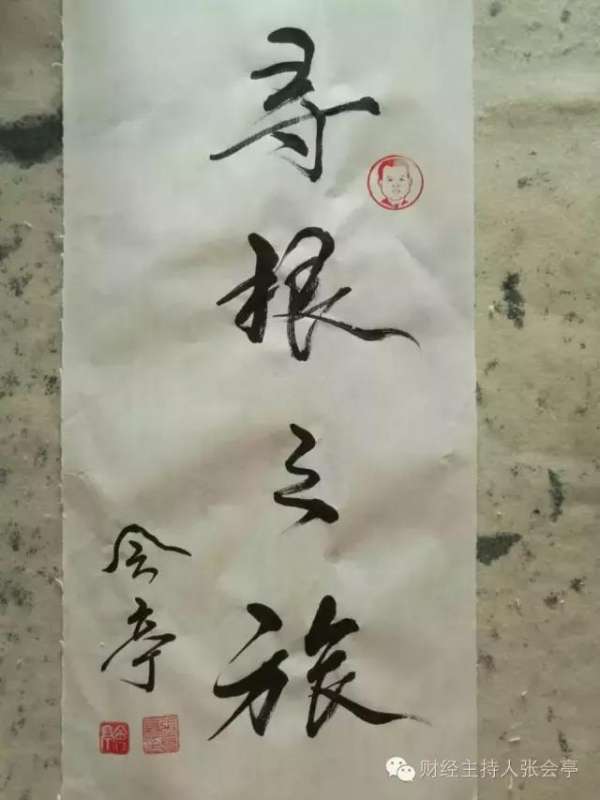 寻根之旅
会亭
财经主持人张会亭